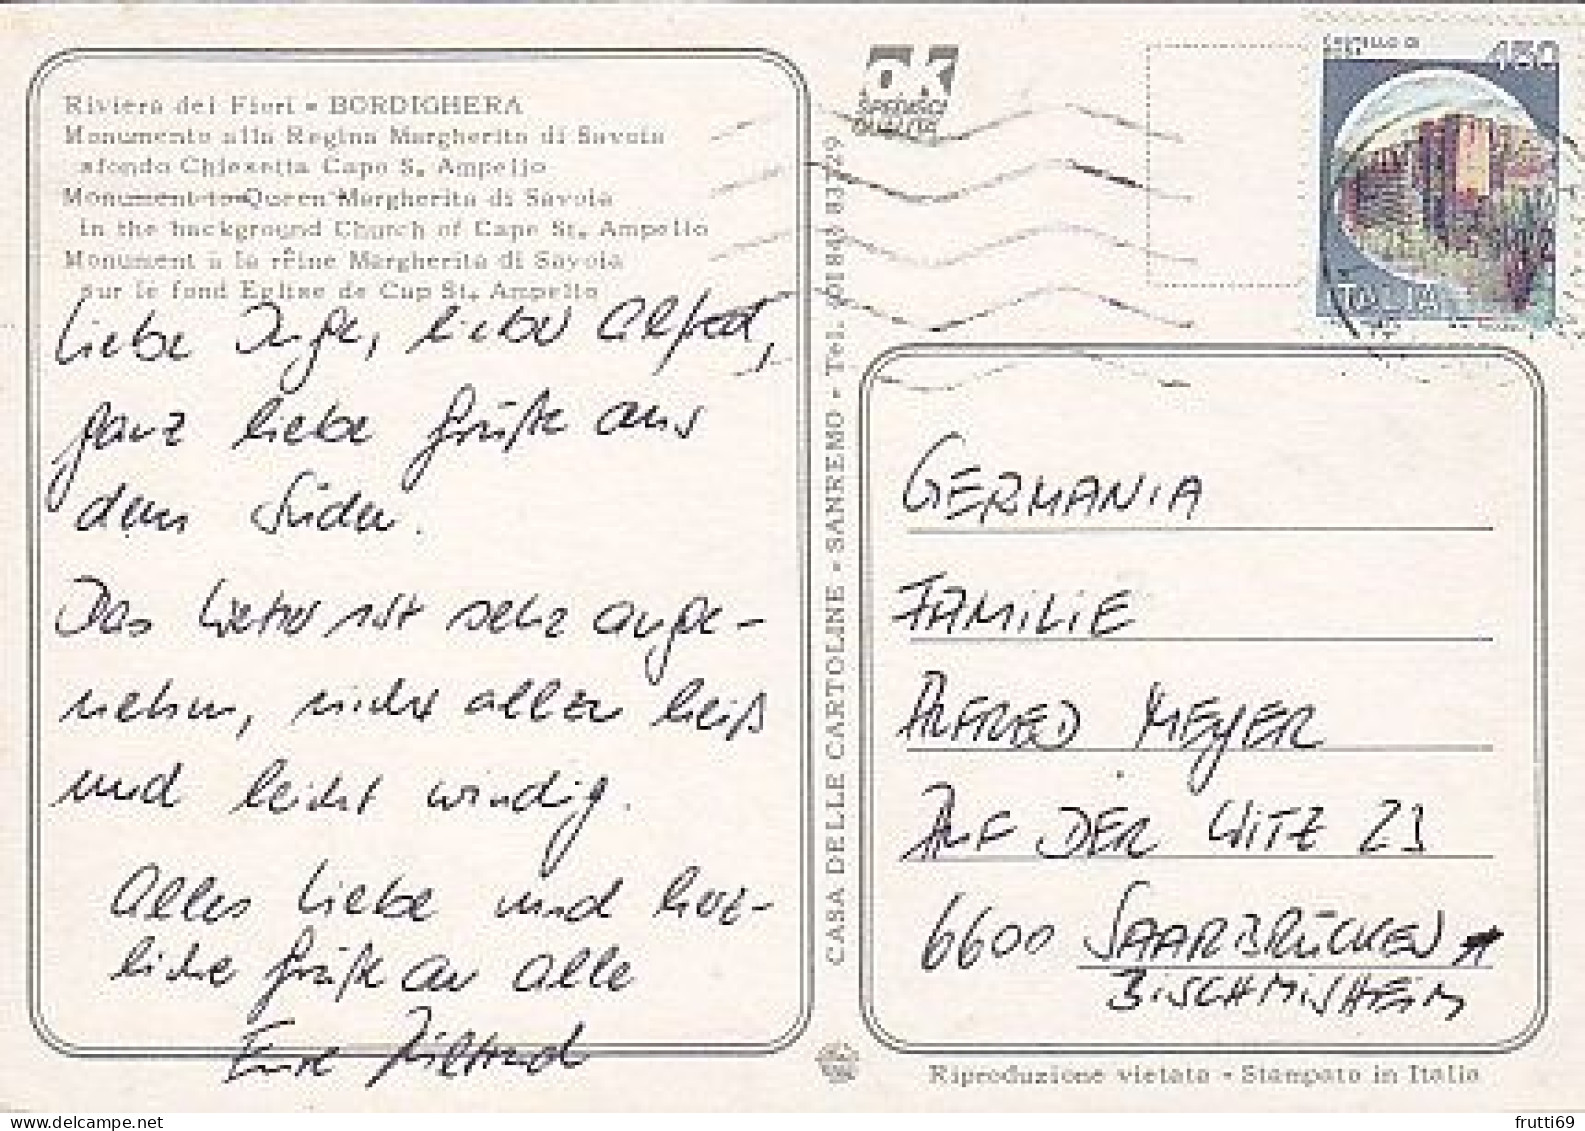 Riviera dei Fiori - BORDIGHERA
Monumento alla Regina Margherita di Savoia
sfondo Chiesetta Capo S. Ampelio
Monument to Queen Margherita di Savoia
in the background Church of Cape St. Ampelio
Monument à la rêine Margherita di Savoia
sur le fond Eglise de Cap St. Ampelio
Liebe Inge, lieber Alfred,
ganz liebe Grüße aus
dem Süden.
Das Wetter ist sehr ange-
nehm, nicht allzu heiß
und leicht windig.
Alles Liebe und herz-
liche Grüße an alle
Eure Hiltrud
CASA DELLE CARTOLINE - SANREMO - Tel. (0184) 83729
OK
CASTELLO DI
450
ITALIA
GERMANIA
FAMILIE
ALFRED MEYER
AUF DER WITZ 23
6600 SAARBRÜCKEN
BISCHMISHEIM
Riproduzione vietata - Stampato in Italia
frutti69